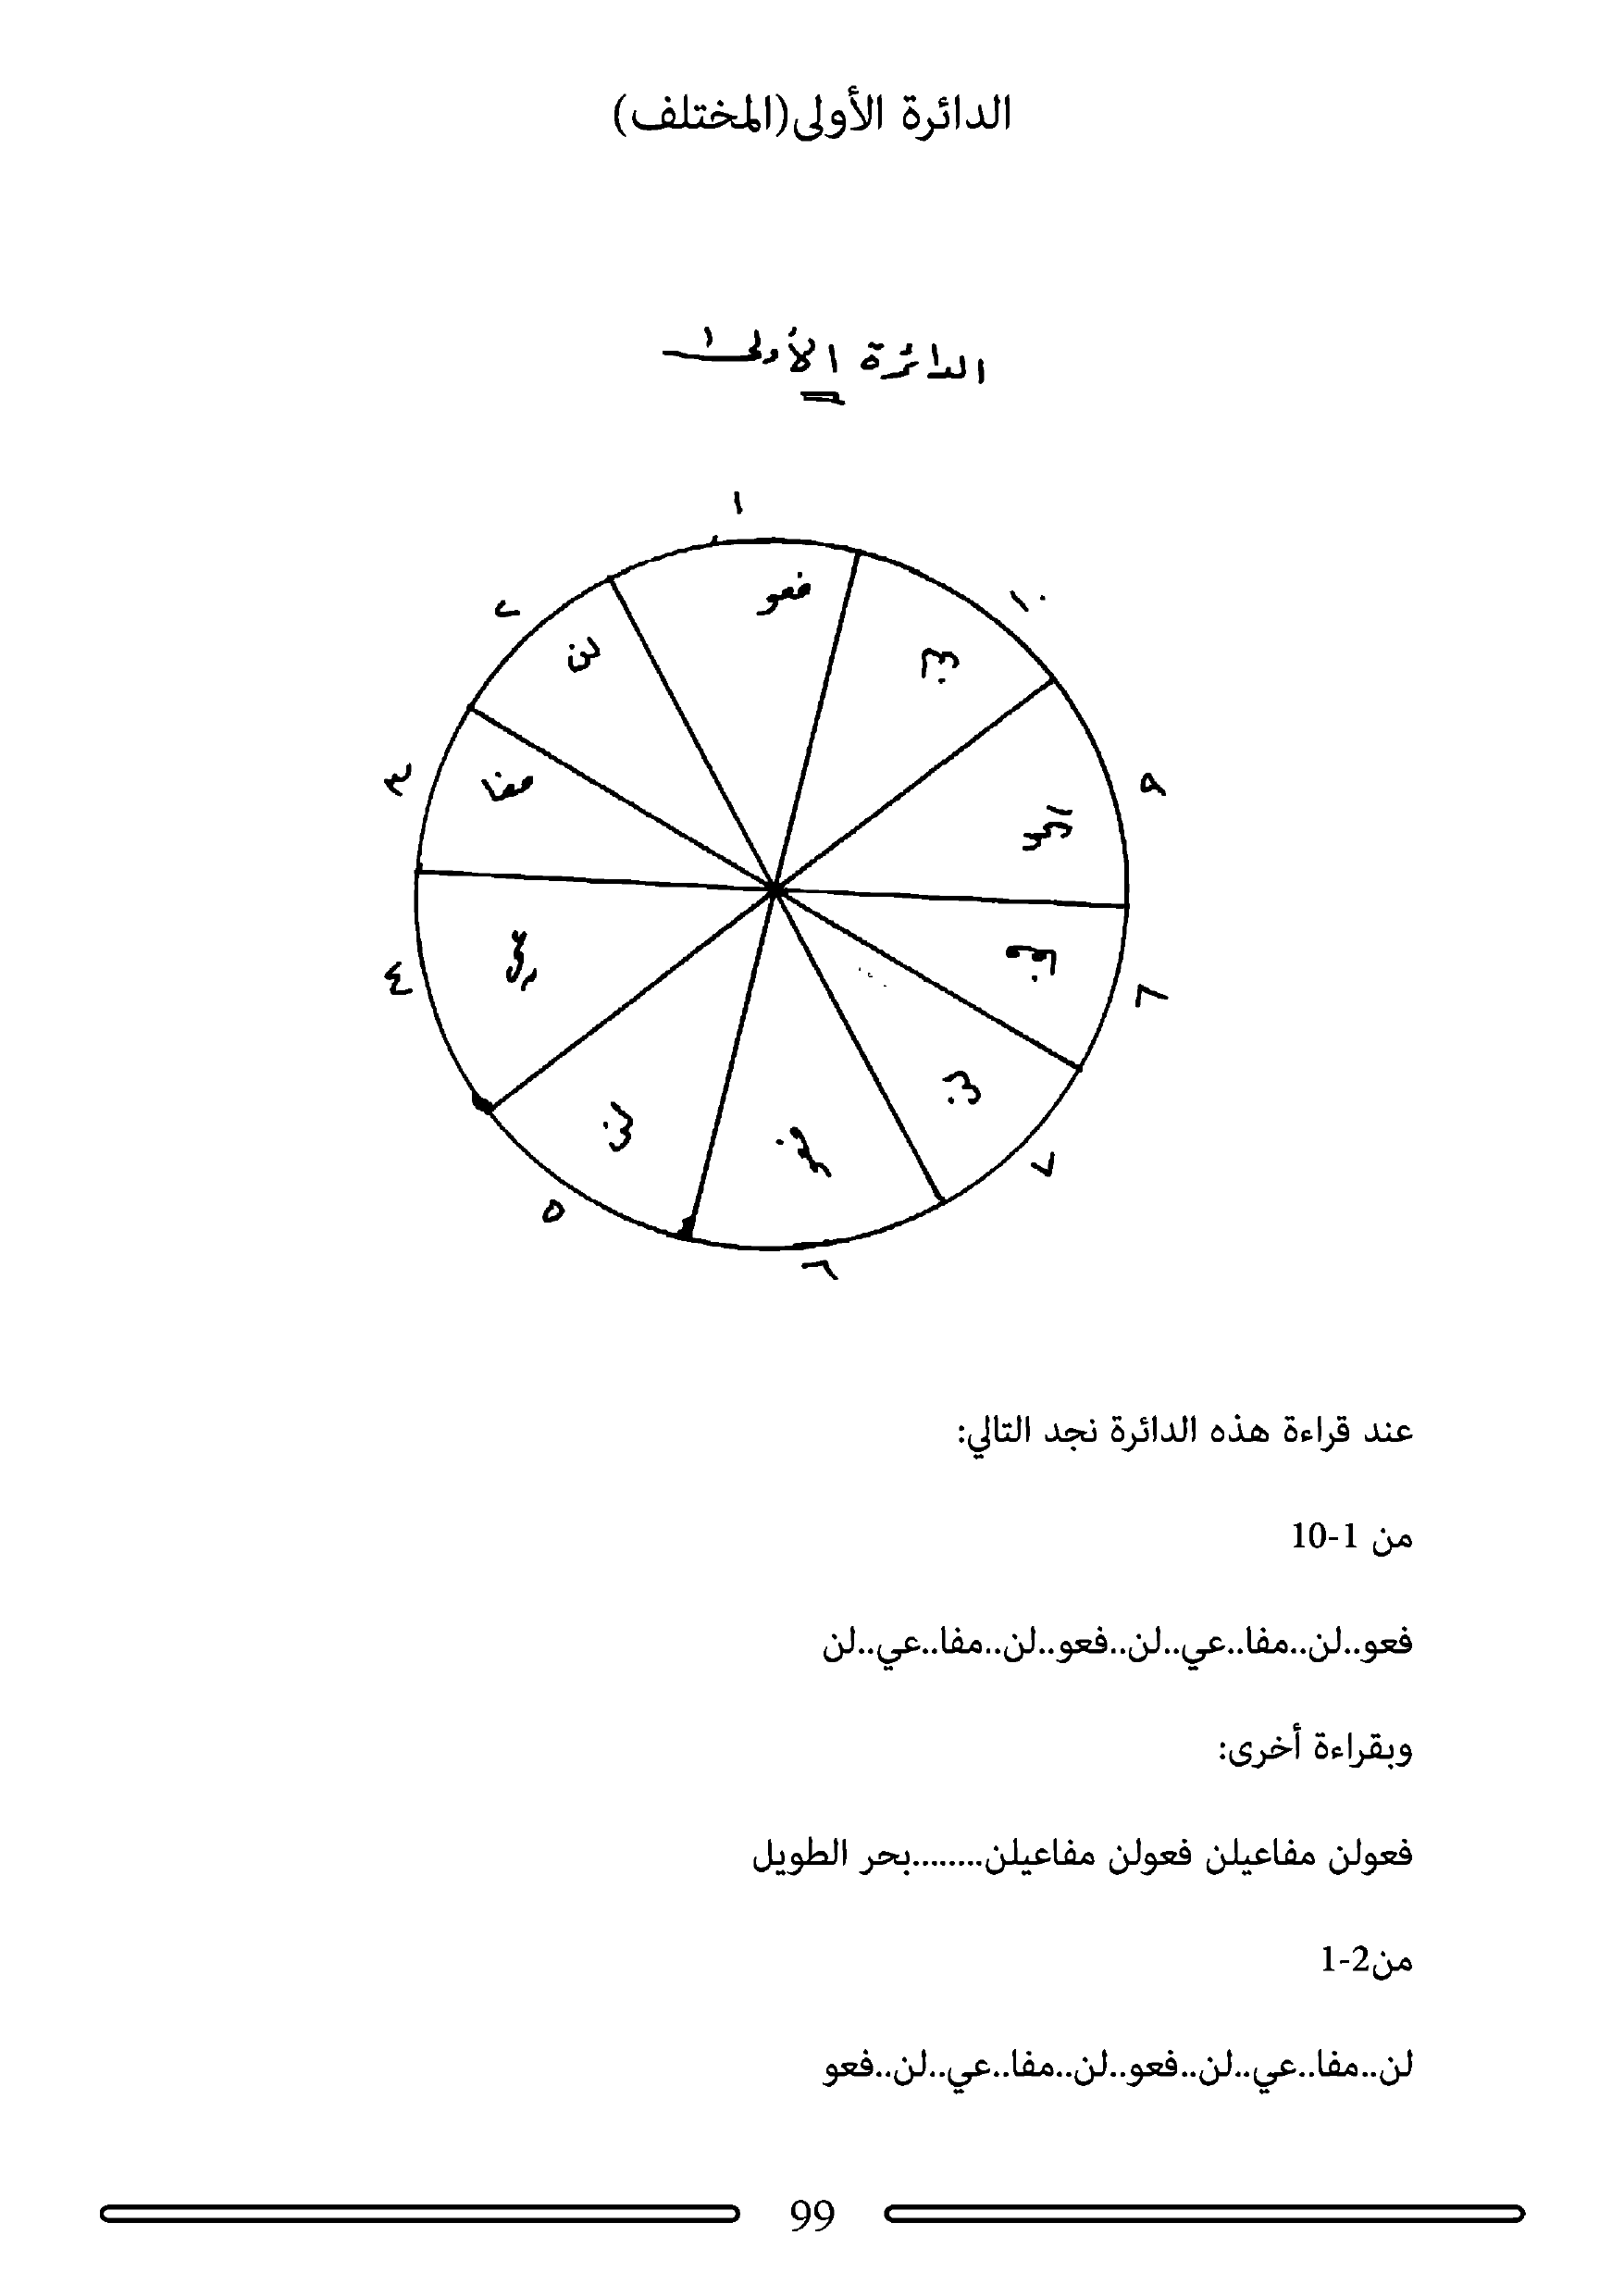 الدائرة الأولى(المختلف)
الدائرة الأولى
١
فعو
٢
لن
٣
مفا
٤
عي
٥
لن
٦
فعو
٧
لن
مفا
٩
عي
١٠
لن
عند قراءة هذه الدائرة نجد التالي:
من 1-10
فعو..لن..مفا..عي..لن..فعو..لن..مفا..عي..لن
وبقراءة أخرى:
فعولن مفاعيلن فعولن مفاعيلن........بحر الطويل
من2-1
لن..مفا..عي..لن..فعو..لن..مفا..عي..لن..فعو
99